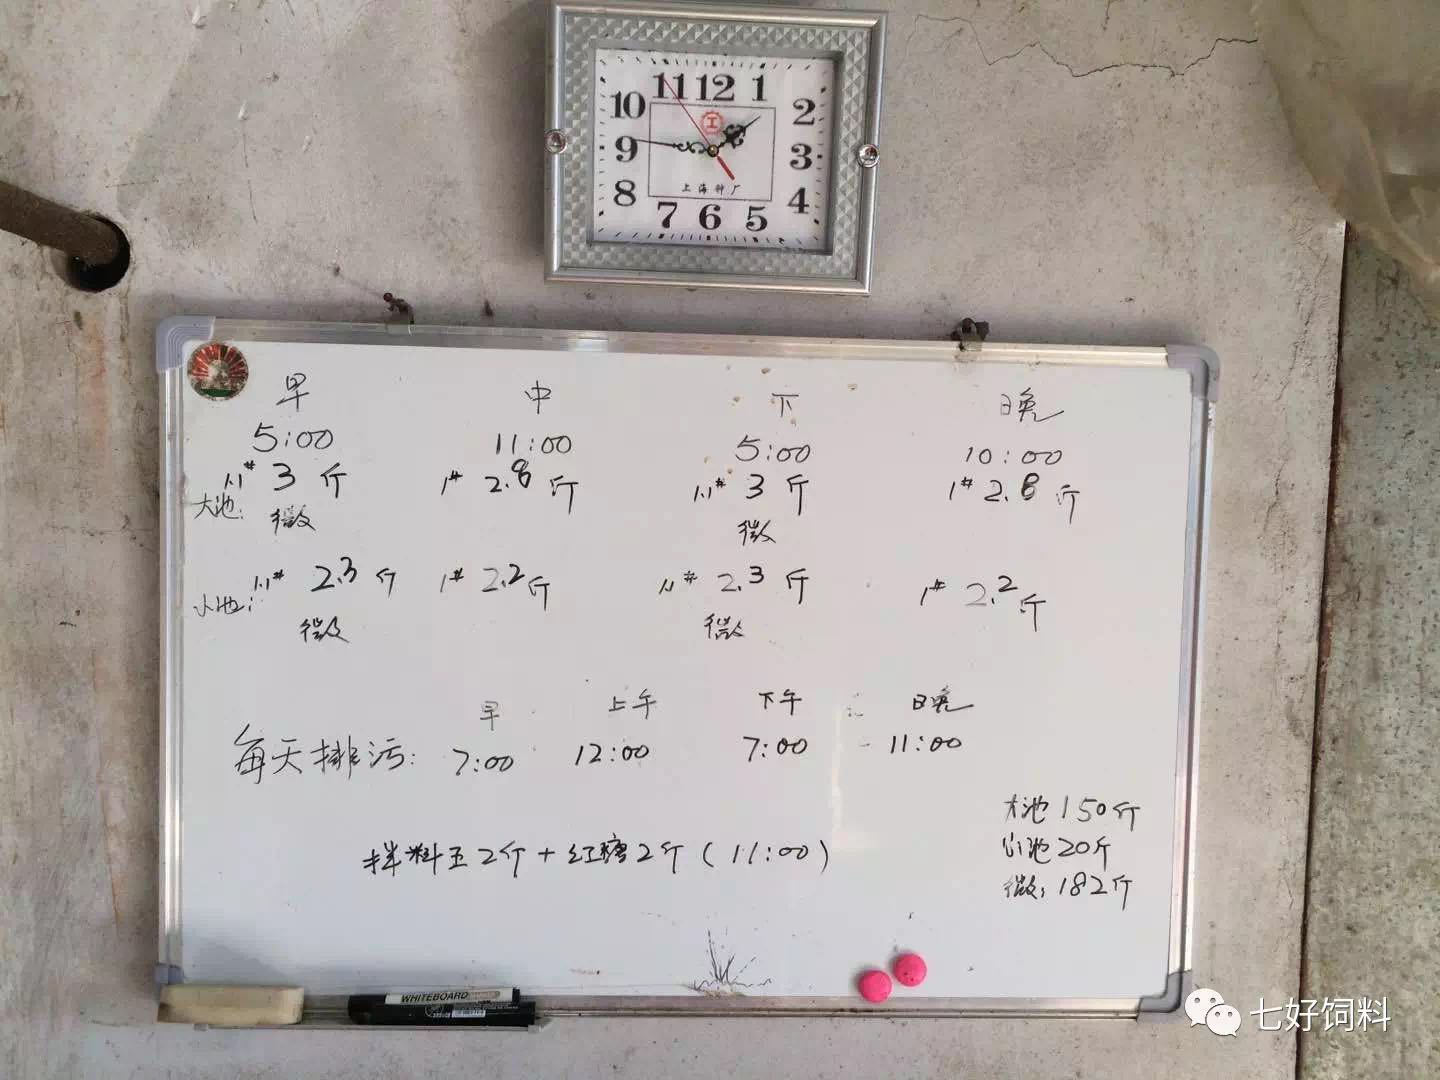 11 12 1
10 2
9 3
8 4
7 6 5
上海钟厂
早 中 下 晚
5:00 11:00 5:00 10:00
1.1# 3斤 1# 2.8斤 1.1# 3斤 1# 2.8斤
大池: 微 微
小池: 1.1# 2.3斤 1# 2.2斤 1.1# 2.3斤 1# 2.2斤
微 微
早 上午 下午 晚
每天排污: 7:00 12:00 7:00 11:00
大池150斤
拌料王2斤+红糖2斤(11:00) 小池20斤
微:182斤
WHITEBOARD
七好饲料